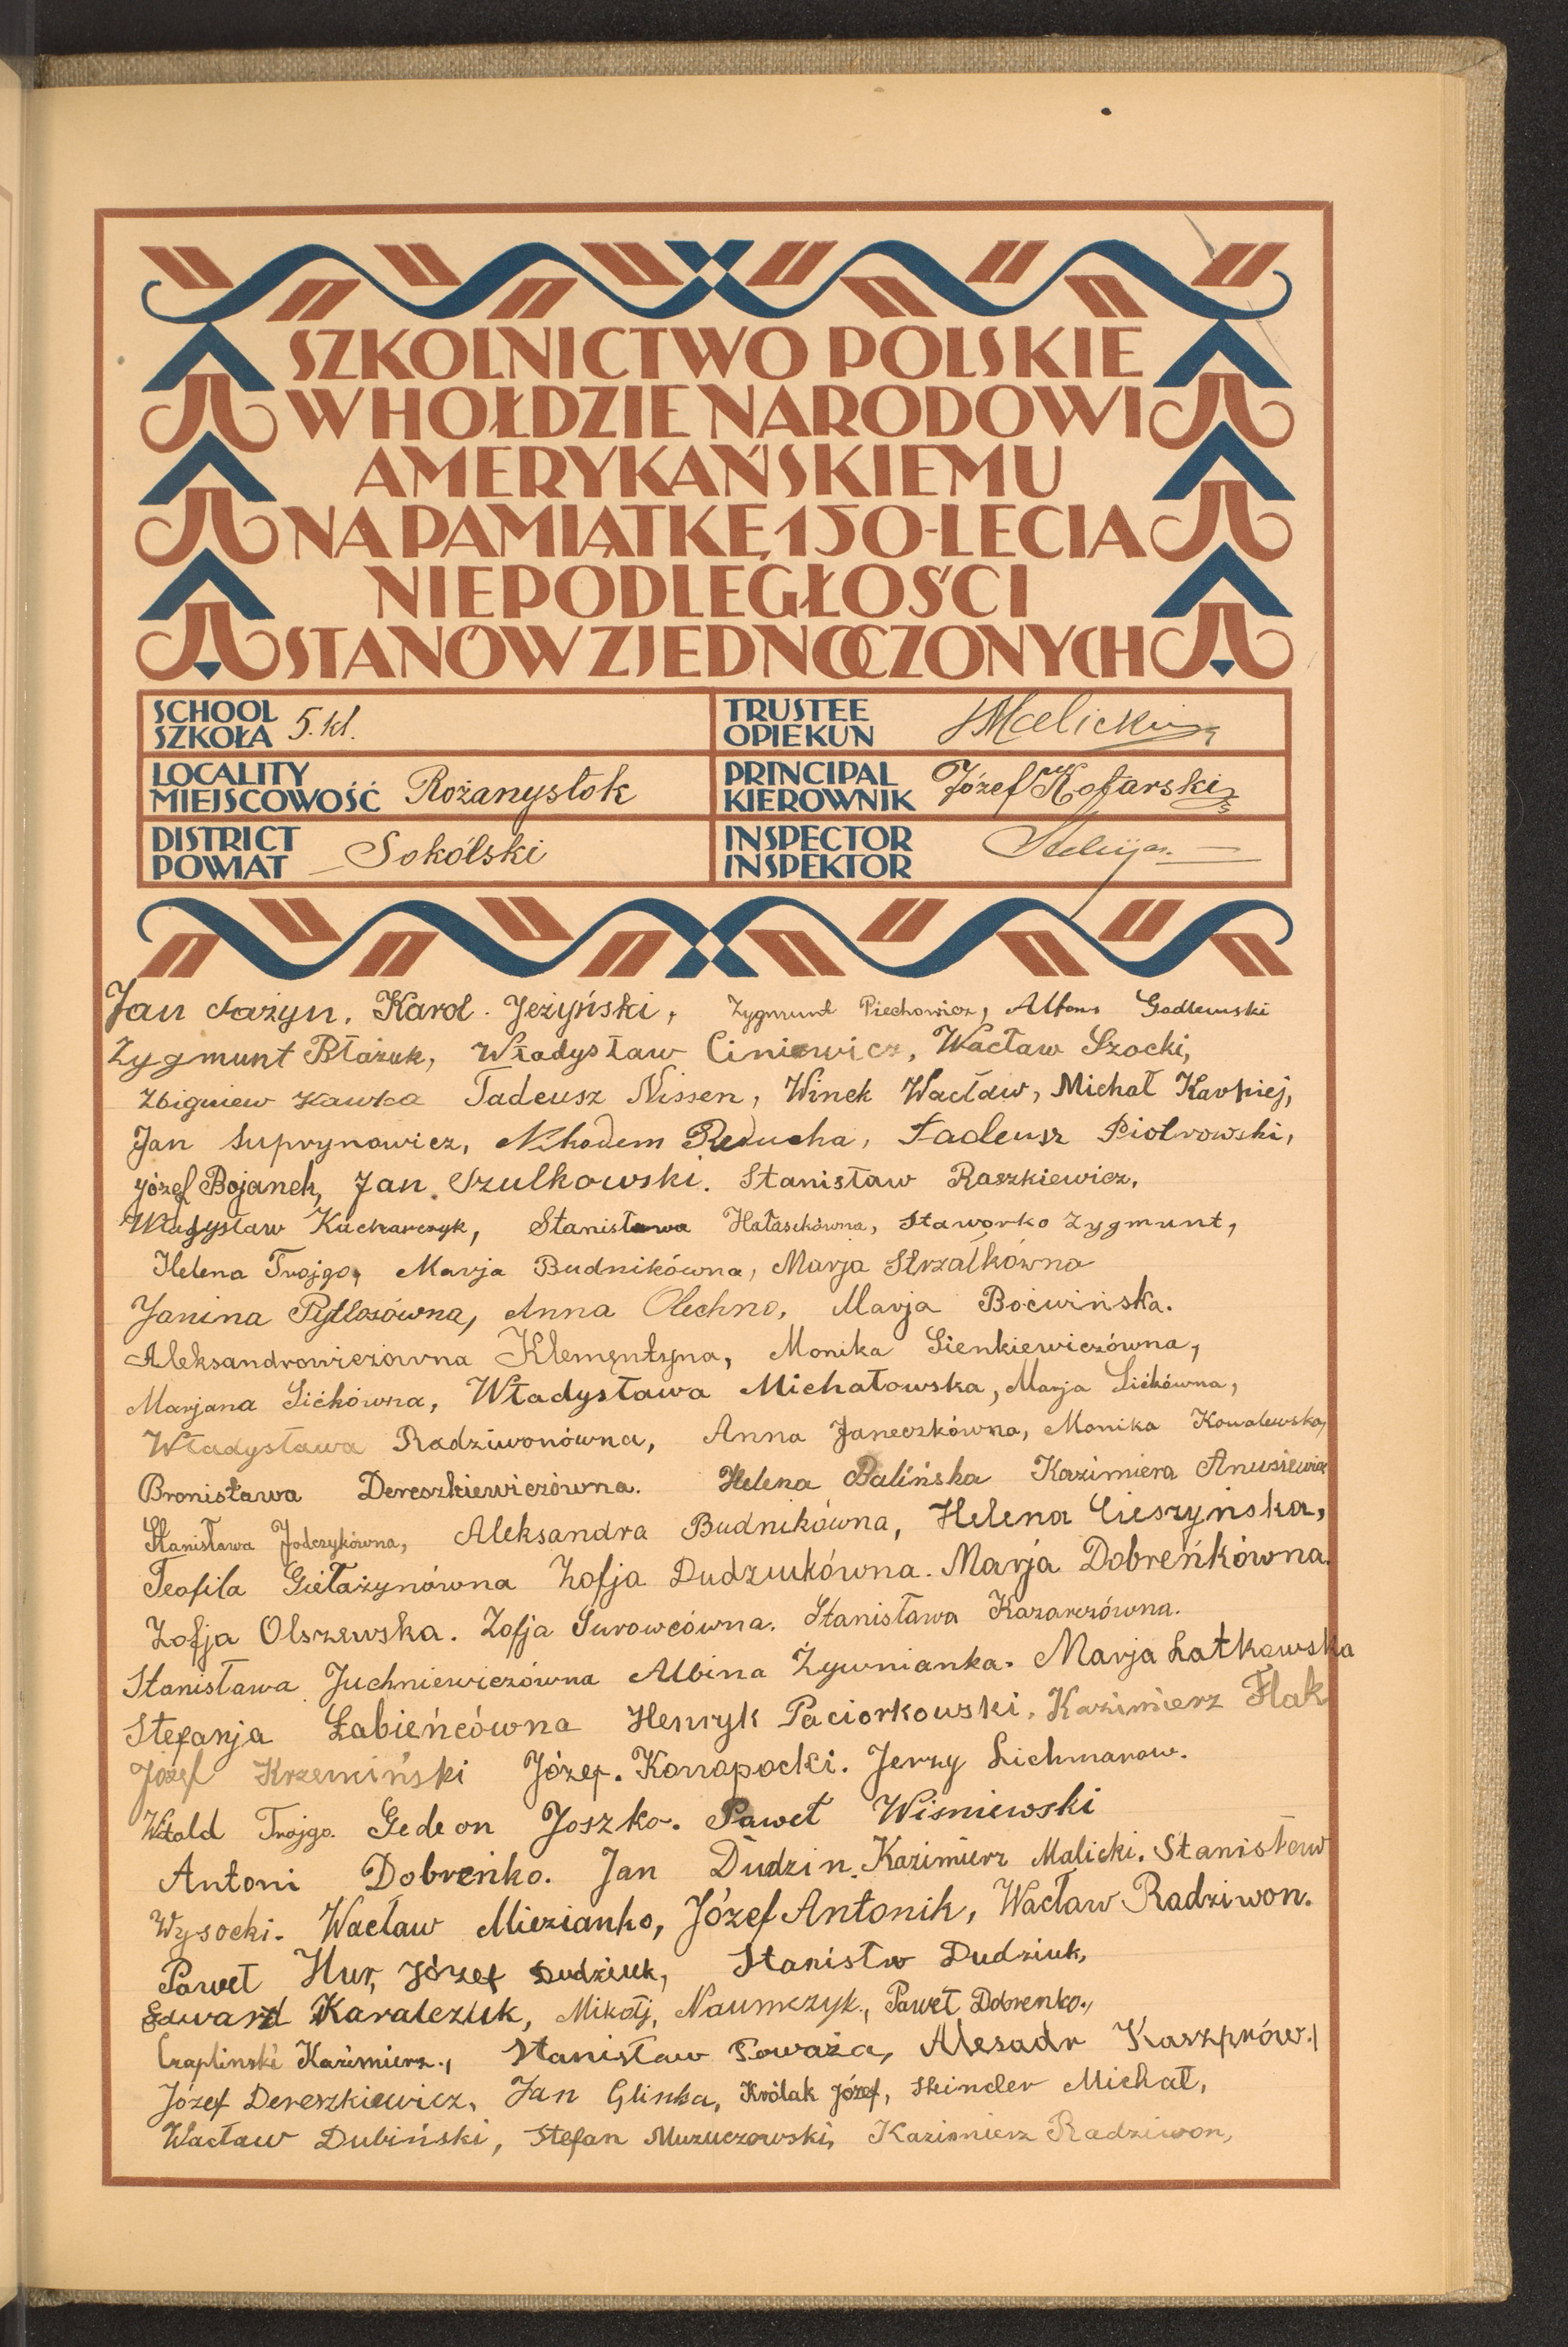 SZKOLNICTWO POLSKIE
W HOŁDZIE NARODOWI
AMERYKAŃSKIEMU
NA PAMIĄTKĘ 150-LECIA
NIEPODLEGŁOŚCI
STANÓW ZJEDNOCZONYCH
SCHOOL
SZKOŁA 5. kl.
TRUSTEE
OPIEKUN Malicki
LOCALITY
MIEJSCOWOŚĆ Rożanystok
PRINCIPAL
KIEROWNIK Józef Kotarski
DISTRICT
POWIAT Sokólski
INSPECTOR
INSPEKTOR
Jan Łażyn, Karol Jeżyński, Zygmunt Piechowicz, Alfons Godlewski
Zygmunt Błażuk, Władysław Ciniewicz, Wacław Szocki,
Zbigniew Kawka Tadeusz Nissen, Winek Wacław, Michał Karpiej,
Jan Suprynowicz, Nikodem Reducha, Tadeusz Piotrowski,
Józef Bojanek, Jan Szulkowski. Stanisław Raszkiewicz,
Władysław Kucharczyk, Stanisława Hałasikówna, Staworko Zygmunt,
Helena Trojgo, Marja Budnikówna, Marja Strzałkówna
Janina Pytlosówna, Anna Olechno, Marja Boćwińska.
Aleksandrowiczówna Klementyna, Monika Sienkiewiczówna,
Marjana Sićkówna, Władysława Michałowska, Marja Sićkówna,
Władysława Radziwonówna, Anna Janeczkówna, Monika Kowalewska,
Bronisława Dereszkiewiczówna. Helena Balińska Kazimiera Anusiewicz
Stanisława Jodczykówna, Aleksandra Budnikówna, Helena Cieszyńska,
Teofila Giełażynówna Zofja Dudziukówna. Marja Dobreńkówna.
Zofja Olszewska. Zofja Surowcówna. Stanisława Kazarczówna.
Stanisława Juchniewiczówna Albina Żywnianka. Marja Latkowska
Stefanja Łabieńcówna Henryk Paciorkowski, Kazimierz Flak
Józef Krzemiński Józef. Konopacki. Jerzy Lichmarow.
Witold Trojgo. Gedeon Joszko. Paweł Wiśniewski
Antoni Dobreńko. Jan Dudzin. Kazimierz Malicki. Stanisław
Wysocki. Wacław Miezianko, Józef Antonik, Wacław Radziwon.
Paweł Hur, Józef Dudziuk, Stanisłw Dudziuk,
Edward Karalczuk, Mikołj, Naumczyk, Paweł Dobrenko,
Czaplinski Kazimierz, Stanisław Poważa, Alesadr Kaszprów.
Józef Dereszkiewicz, Jan Glinka, Królak Józef, Skinder Michał,
Wacław Dubiński, Stefan Muzuczowski, Kazimierz Radziwon,